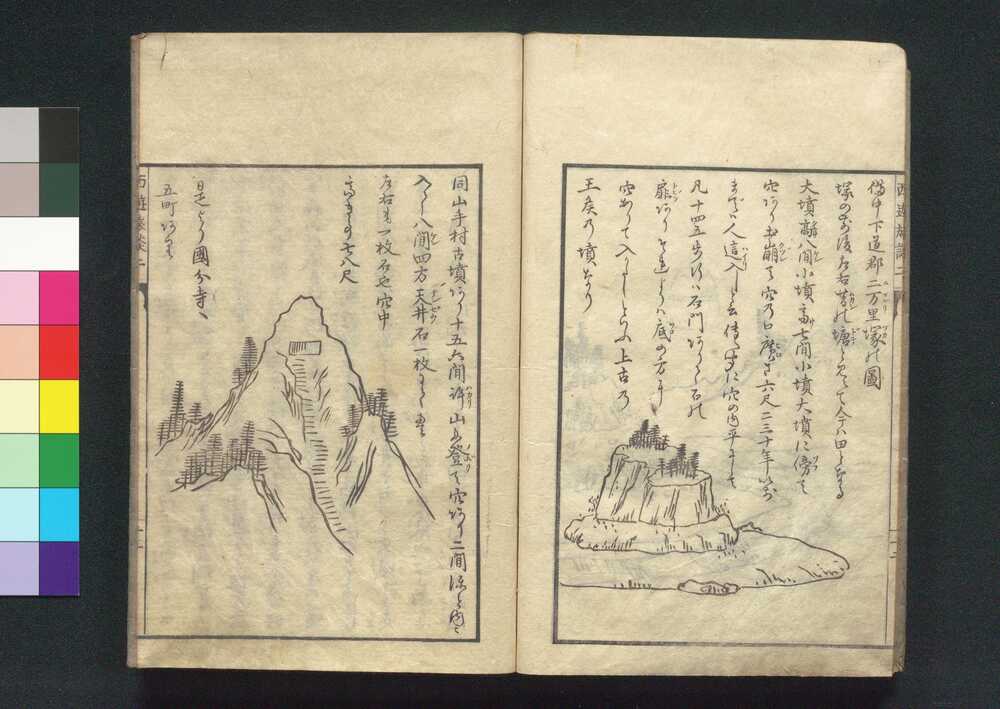 備中下道郡二万里塚の圖
塚のお後左右昔は塘と見えて今ハ田となる
大墳高八間小墳高七間小墳大墳に傍て
穴あり土崩て穴の口廣さ六尺二三十年以前
までハ人這入しと云傳ふに穴の内平にして
凡十四五歩行ハ石門ありて石の
扉ありそれよりハ底の方に
穴あつて入りしとのふ上古の
王矦乃墳なり
西遊旅譚二
同山手村古墳あり十五六間許山を登て穴あり二間ほど内に
入て八間四方天井石一枚にて
左右も一枚石也穴中
高さも七八尺
是より國分寺へ
五町あり
西遊旅譚二